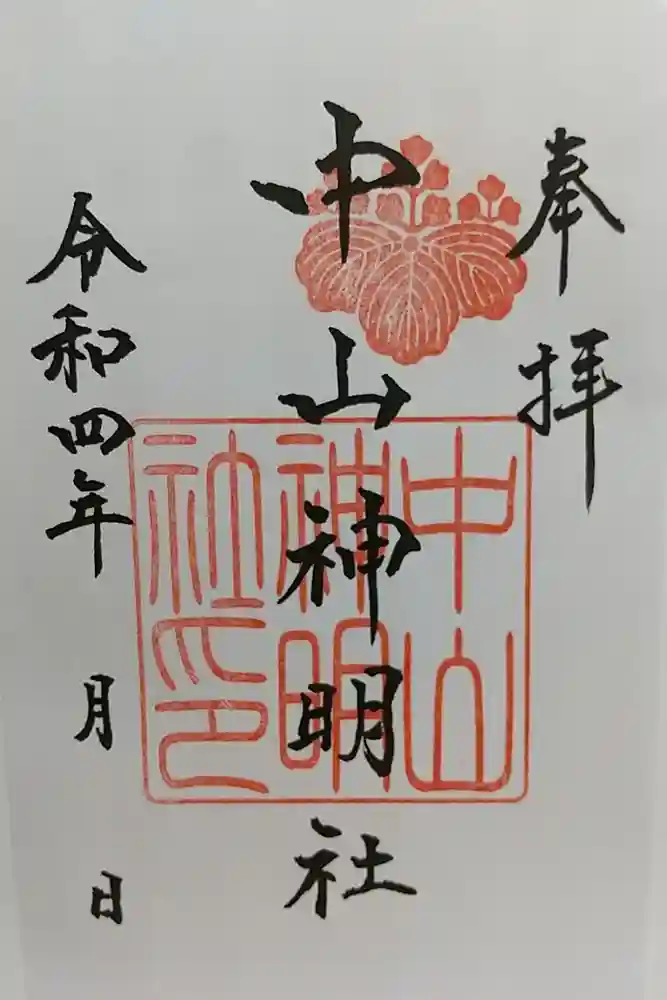 奉拝
中山神明社
令和四年 月 日
中山
神明
社印